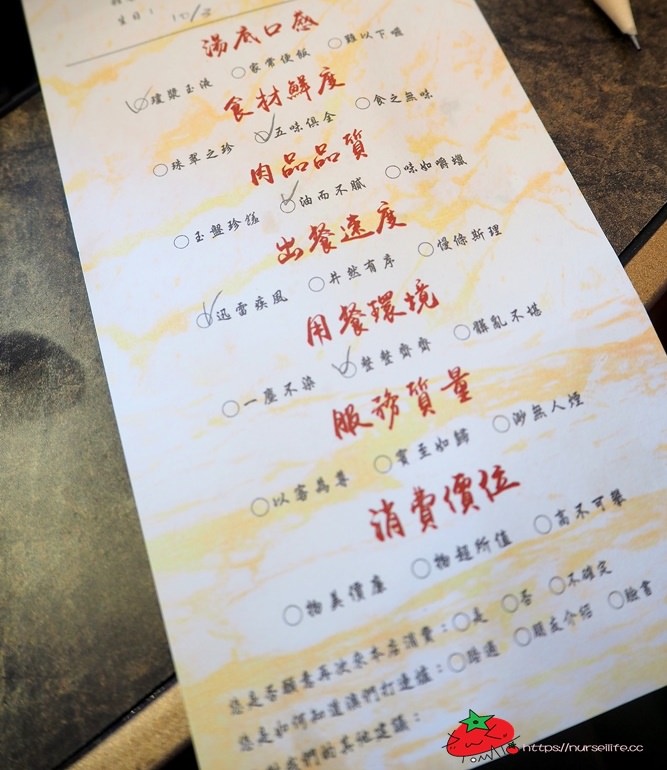 生日：
湯底口感
瓊漿玉液 家常便飯 難以下嚥
食材鮮度
珠翠之珍 五味俱全 食之無味
肉品品質
玉盤珍饈 油而不膩 味如嚼蠟
出餐速度
迅雷疾風 井然有序 慢條斯理
用餐環境
一塵不染 整整齊齊 髒亂不堪
服務質量
以客為尊 賓至如歸 渺無人煙
消費價位
物美價廉 物超所值 高不可攀
您是否願意再次來本店消費：是 否 不確定
您是如何知道澳們打邊爐：路過 朋友介紹 臉書
對我們的其他建議：
https://nurseilife.cc